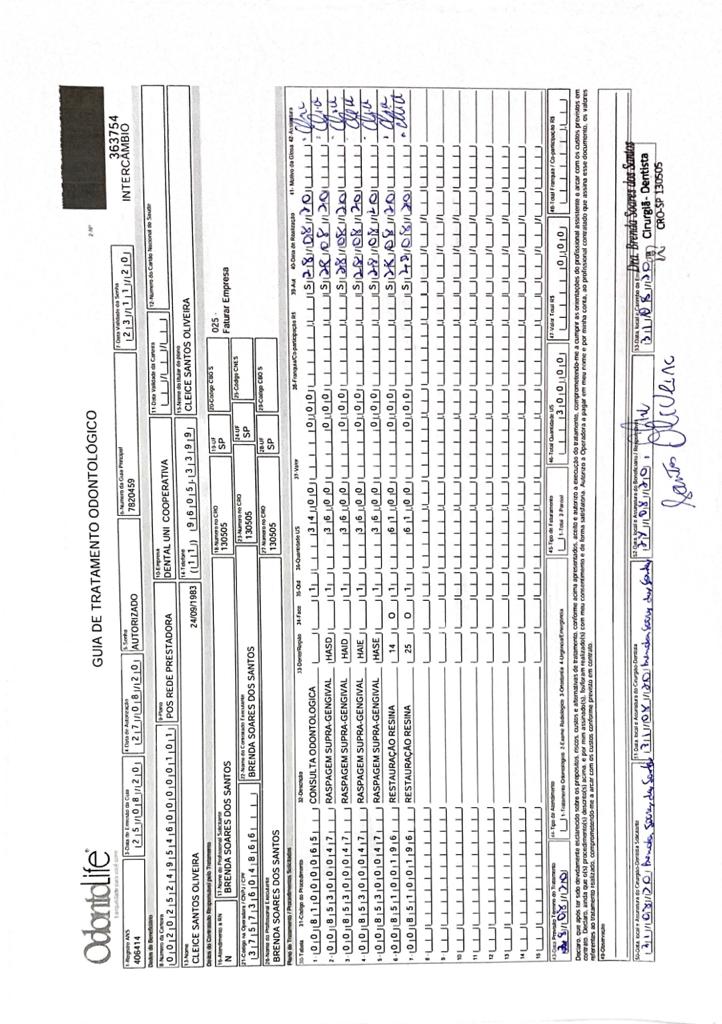 OdontoLife
tranquilidade para você sorrir
GUIA DE TRATAMENTO ODONTOLÓGICO
2-Nº
363754
INTERCÂMBIO
1-Registro ANS
406414
3-Data de Emissão da Guia
25/08/20
4-Data de Autorização
27/08/20
5-Senha
AUTORIZADO
6-Número da Guia Principal
7820459
7-Data Validade da Senha
23/11/20
Dados do Beneficiário
8-Número da Carteira
00202524954600000101
9-Plano
POS REDE PRESTADORA
10-Empresa
DENTAL UNI COOPERATIVA
11-Data Validade da Carteira
12-Número do Cartão Nacional de Saúde
13-Nome
CLEICE SANTOS OLIVEIRA
24/09/1983
14-Telefone
(11) 96053399
15-Nome do titular do plano
CLEICE SANTOS OLIVEIRA
Dados do Contratado Responsável pelo Tratamento
16-Atendimento a RN
N
17-Nome do Profissional Solicitante
BRENDA SOARES DOS SANTOS
18-Número no CRO
130505
19-UF
SP
20-Código CBO S
025 -
Faturar Empresa
21-Código na Operadora / CNPJ / CPF
37573604866
22-Nome do Contratado Executante
BRENDA SOARES DOS SANTOS
23-Número no CRO
130505
24-UF
SP
25-Código CNES
26-Nome do Profissional Executante
BRENDA SOARES DOS SANTOS
27-Número no CRO
130505
28-UF
SP
29-Código CBO S
Plano de Tratamento / Procedimentos Solicitados
30-Tabela 31-Código do Procedimento 32-Descrição 33-Dente/Região 34-Face 35-Qtd 36-Quantidade US 37-Valor 38-Franquia/Co-participação R$ 39-Aut 40-Data de Realização 41-Motivo da Glosa 42-Assinatura
1- 00 81000065 CONSULTA ODONTOLOGICA 1 34,00 0,00 S 28/08/20
2- 00 85300047 RASPAGEM SUPRA-GENGIVAL HASD 1 36,00 0,00 S 28/08/20
3- 00 85300047 RASPAGEM SUPRA-GENGIVAL HAID 1 36,00 0,00 S 28/08/20
4- 00 85300047 RASPAGEM SUPRA-GENGIVAL HAIE 1 36,00 0,00 S 28/08/20
5- 00 85300047 RASPAGEM SUPRA-GENGIVAL HASE 1 36,00 0,00 S 28/08/20
6- 00 85100196 RESTAURAÇÃO RESINA 14 O 1 61,00 0,00 S 28/08/20
7- 00 85100196 RESTAURAÇÃO RESINA 25 O 1 61,00 0,00 S 28/08/20
8-
9-
10-
11-
12-
13-
14-
15-
43-Data Término do Tratamento
28/08/20
44-Tipo de Atendimento
1-Tratamento Odontológico 2-Exame Radiológico 3-Ortodontia 4-Urgência/Emergência
45-Tipo de Faturamento
1-Total 2-Parcial
46-Total Quantidade US
300,00
47-Valor Total R$
0,00
48-Total Franquia / Co-participação R$
Declaro, que após ter sido devidamente esclarecido sobre os propósitos, riscos, custos e alternativas de tratamento, conforme acima apresentados, aceito e autorizo a execução do tratamento, comprometendo-me a cumprir as orientações do profissional assistente e arcar com os custos previstos em
contrato. Declaro, ainda que o(s) procedimento(s) descrito(s) acima, e por mim assinado(s), foi/foram realizado(s) com meu consentimento e de forma satisfatória. Autorizo a Operadora a pagar em meu nome e por minha conta, ao profissional contratado que assina esse documento, os valores
referentes ao tratamento realizado, comprometendo-me a arcar com os custos conforme previsto em contrato.
49-Observação
50-Data, local e Assinatura do Cirurgião-Dentista Solicitante
31/08/20 Brenda Soares dos Santos
51-Data, local e Assinatura do Cirurgião-Dentista
31/08/20 Brenda Soares dos Santos
52-Data, local e Assinatura do Beneficiário / Responsável
28/08/20
Santos Oliveira
31/08/20
Dra. Brenda Soares dos Santos
Cirurgiã - Dentista
CRO-SP 130505